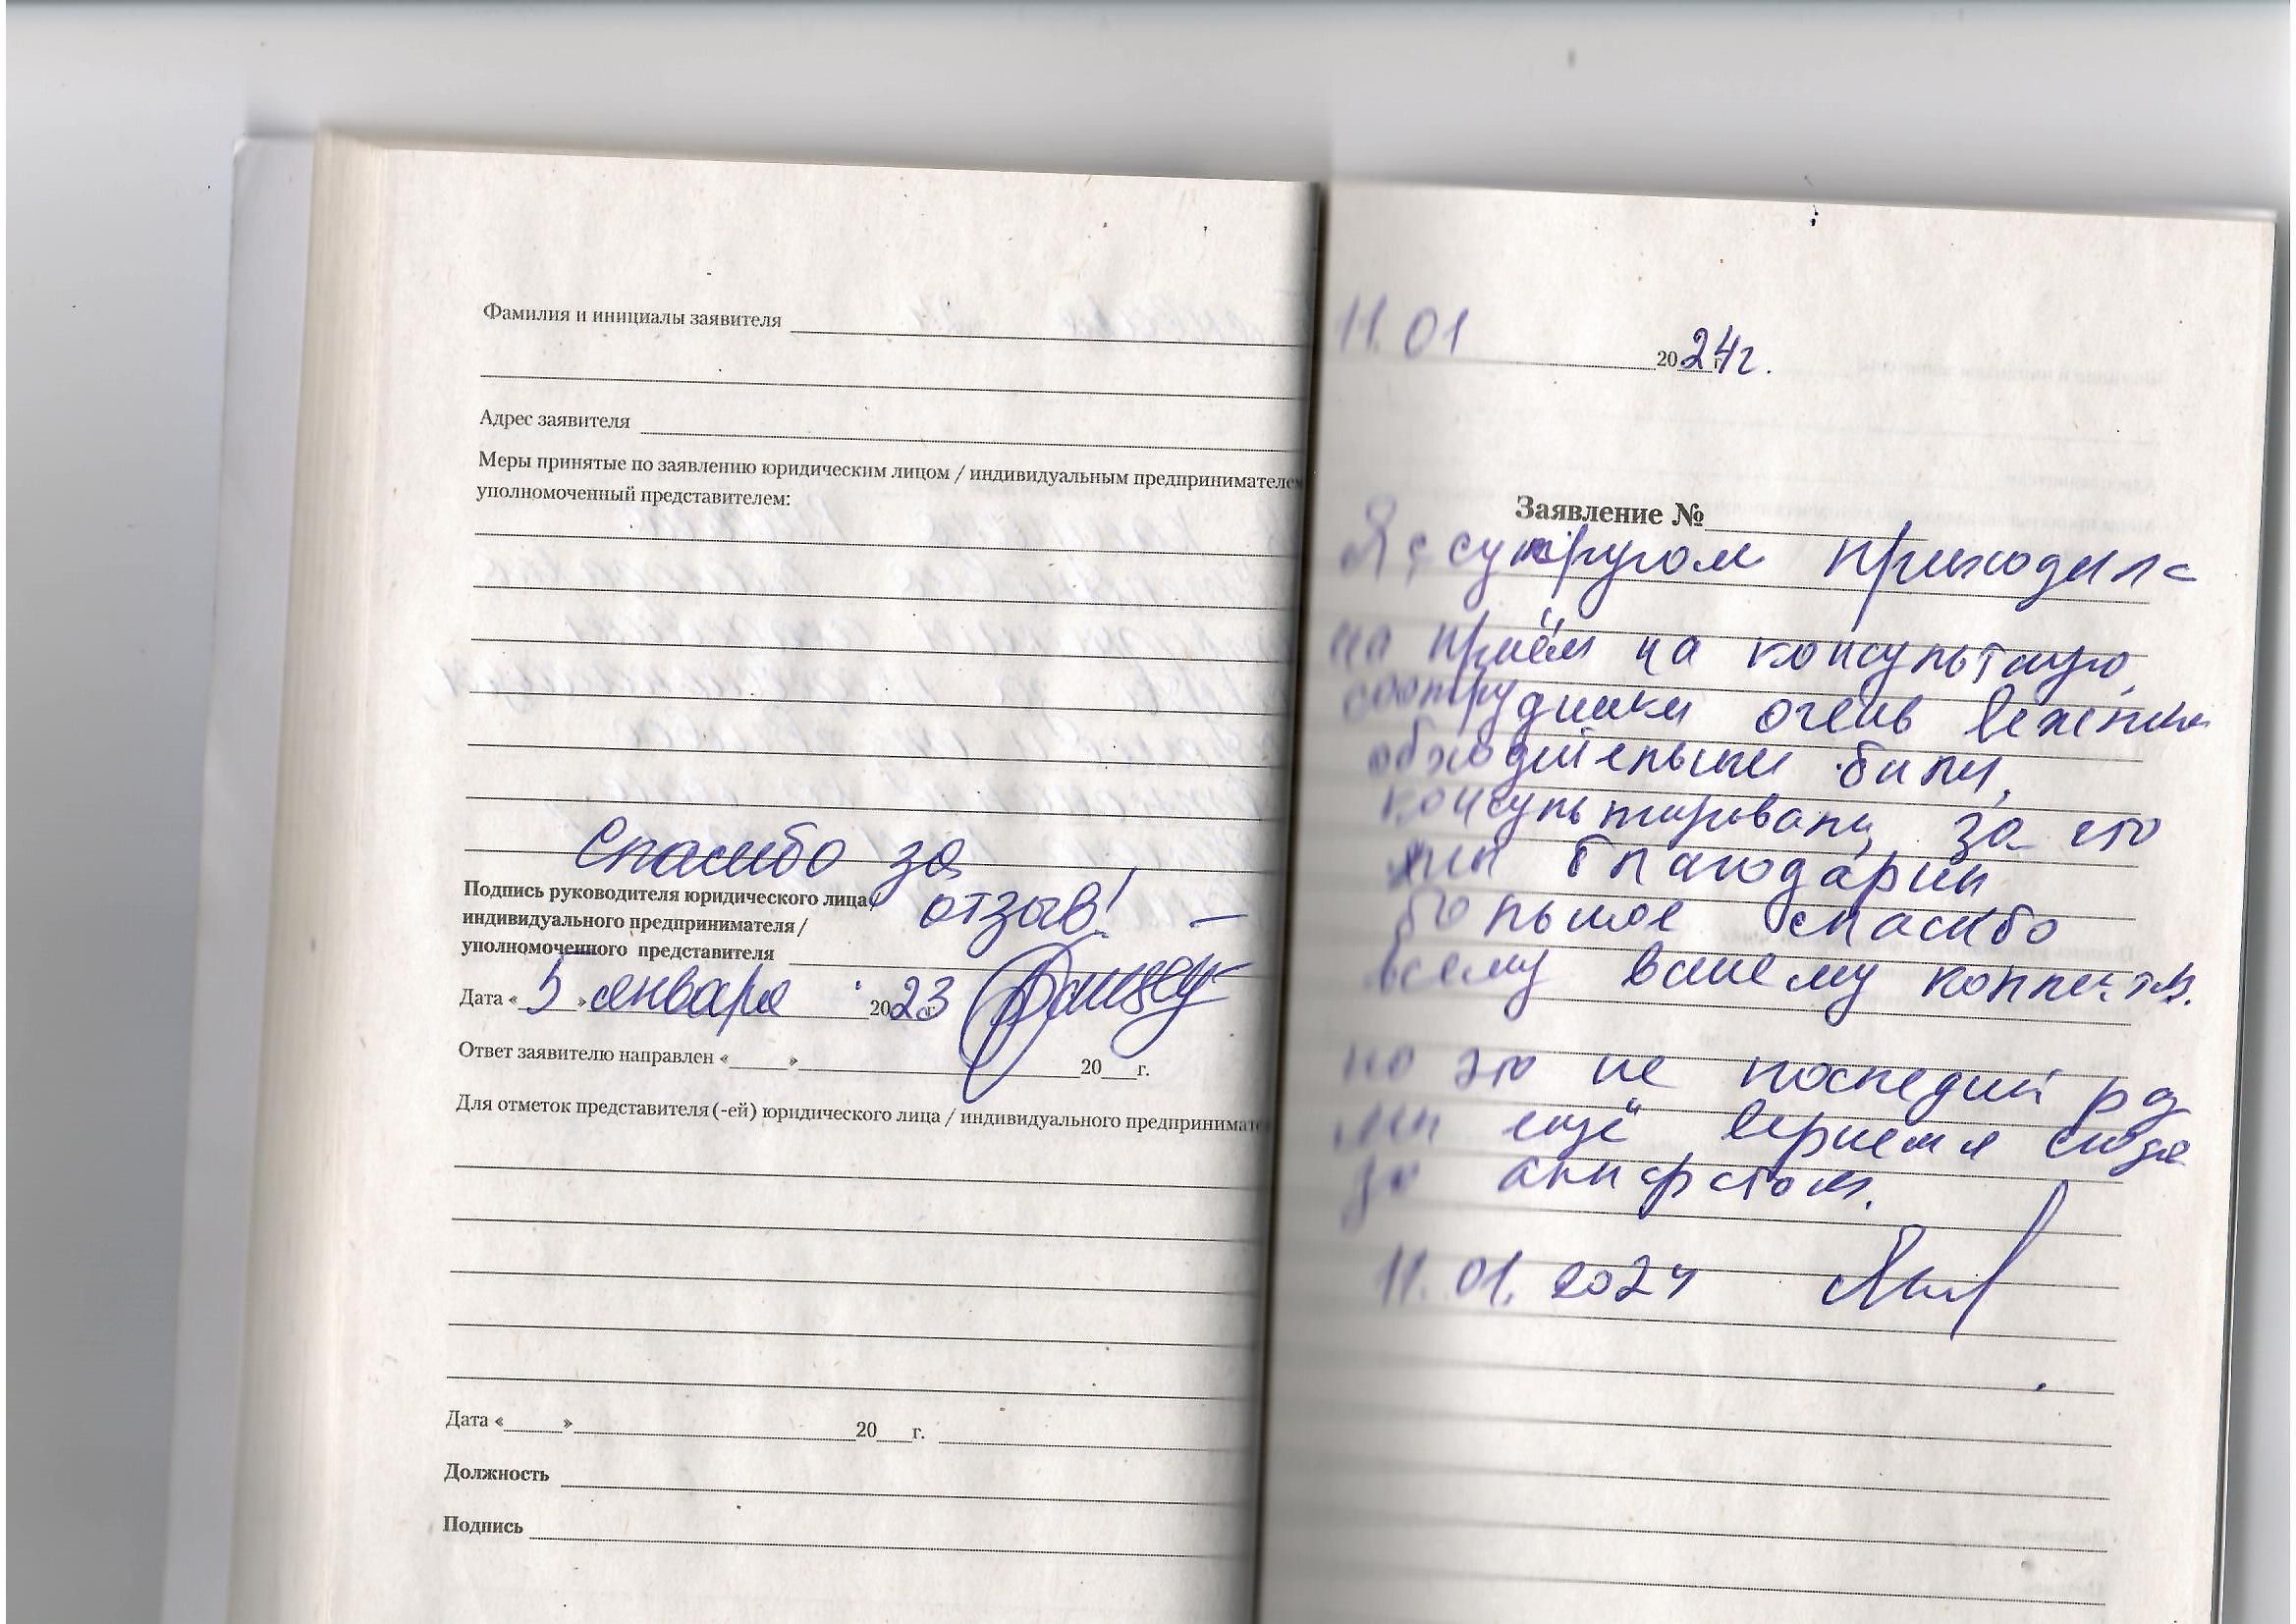 Фамилия и инициалы заявителя
Адрес заявителя
Меры принятые по заявлению юридическим лицом / индивидуальным предпринимателем
уполномоченный представителем:
Спасибо за
отзыв! –
Подпись руководителя юридического лица/
индивидуального предпринимателя/
уполномоченного представителя
Дата «5» января 2023
Ответ заявителю направлен «____»____ 20__г.
Для отметок представителя (-ей) юридического лица / индивидуального предпринимате
Дата «____»____ 20__г.
Должность
Подпись
11.01 2024г.
Заявление №
Я с супругом приходила
на приём на консультацию,
сотрудники очень вежливы
обходительные были,
консультировали, за это
благодарим
большое спасибо
всему вашему коллектв.
но это не последний раз
мы ещё вернемся сюда
за
11.01.2024